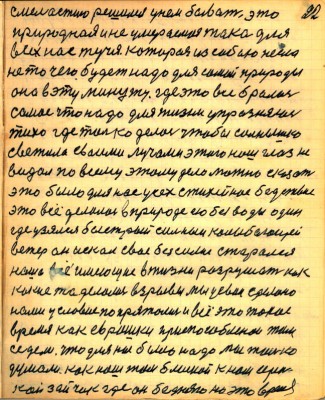 22
решила у нем бывать. это
природная и не умерашная така для
всех нас туча. которая из собою
не то чего будет надо для самой природы
она в эту минуту. где это все бралось
самое что надо для жизни
тихо где только делал чтобы солнышко
светило своими лучами этого наш глаз не
видал по всему этому делу можно сказать
это было для нас усех стихейное бедствие
это всё делалось в природе ею без воды один
где взялся быстрый сильный
ветер он искал свое бессилие старался
наше всё имеющие в жизни разрушать как
какие та делали взрывы. мы у свае сделано
нами условие попрятались и всё это такое
время как сурошки приспособленое там
седем. что для ны было надо мы только
думали. как наш там близкой к нам
кой зайчик где он бедного на это время